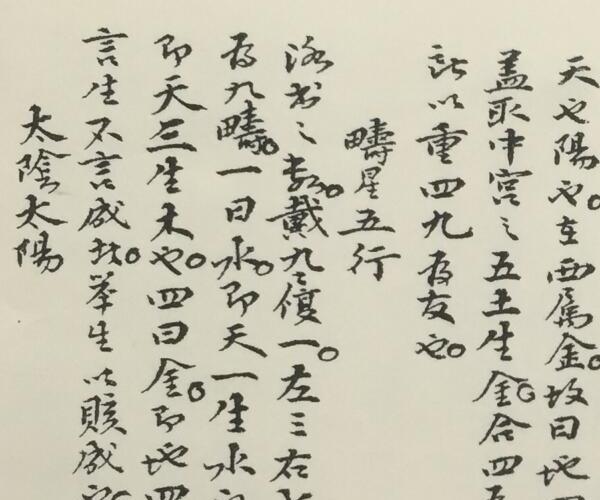 天也陽也。在西属金。故曰地四
蓋取中宮之五土生金。合四
訣以重四九為友也。
疇星五行
洛书之数。戴九履一。左三右
為九疇。一曰水。即天一生水
即天三生木也。四曰金。即地四
言生不言成 舉生以賅成也。
太陰太陽